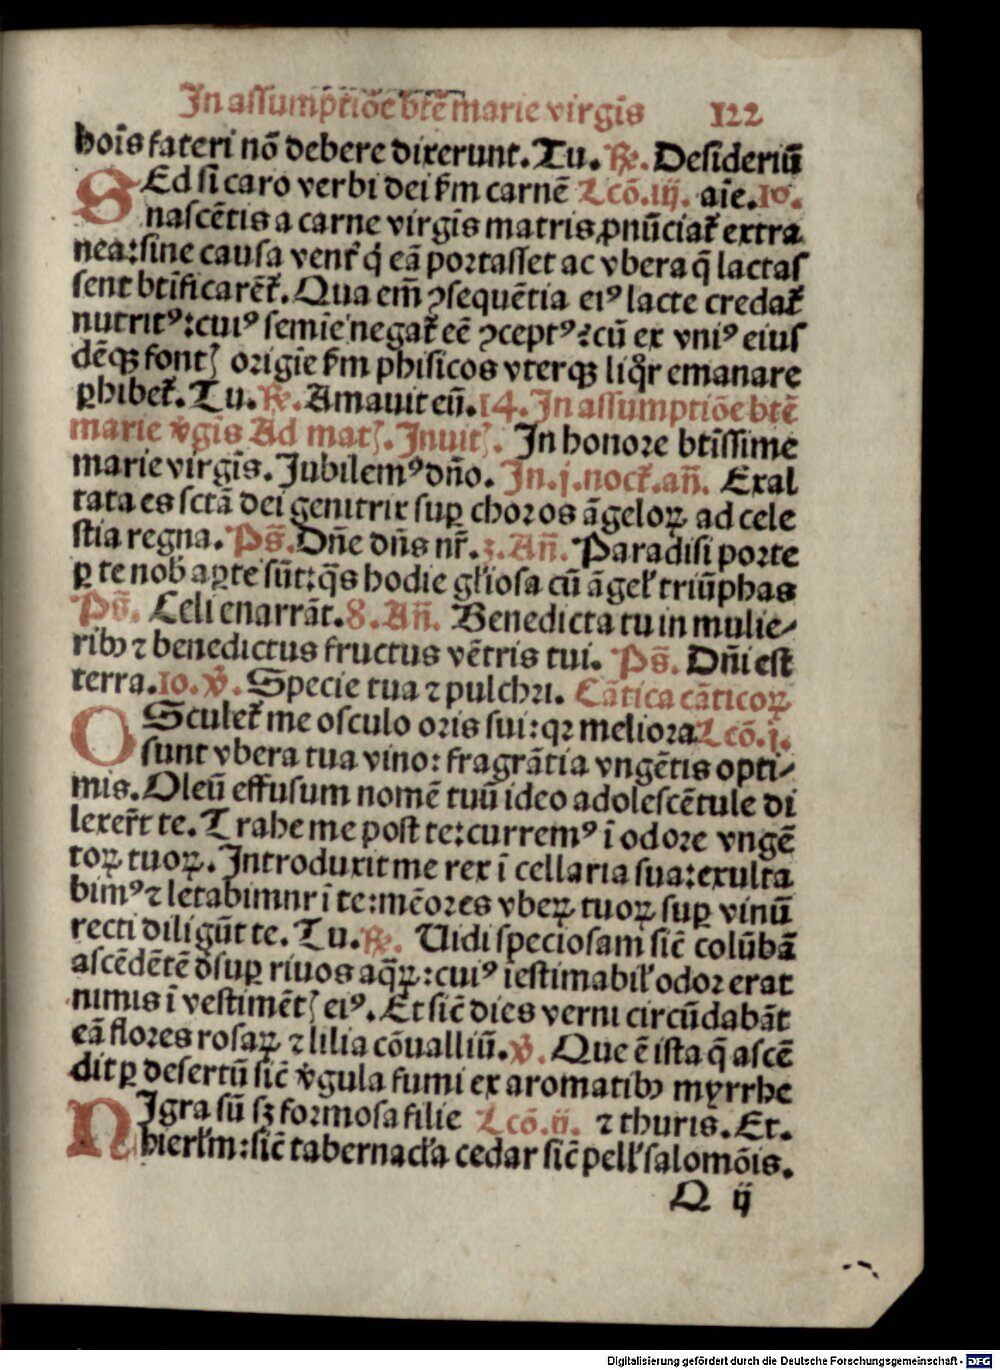 In assumptiōe btē marie virgīs 122
hoīs fateri nō debere dixerunt. Tu. ℞. Desideriū
SEd si caro verbi dei ẜm carnē Lcō. iij. aīe. 10.
nascētis a carne virgīs matris ꝓnūciat᷑ extra
nea: sine causa vent᷑ q̇ eā portasset ac vbera q̄ lactas
sent btīficarēt᷑. Qua em̄ ꝯsequētia eiꝰ lacte credat᷑
nutritꝰ: cuiꝰ semīe negat᷑ eē ꝯceptꝰ: cū ex vniꝰ eius
dēqꝫ fontꝭ origīe ẜm phisicos vterqꝫ liq̇r emanare
ꝑhibet᷑. Tu. ℞. Amauit eū. 14. In assumptiōe btē
marie v̇gīs Ad matꝭ. Inuitꝭ. In honore btīssime
marie virgīs. Jubilemꝰ dn̄o. In. j. noct᷑. an̄. Exal
tata es sctā dei genitrix suꝑ choros āgeloꝝ ad cele
stia regna. Ps̄. Dn̄e dn̄s nr̄. 3. An̄. Paradisi porte
ꝑ te nob̄ aꝑte sūt: q̄s hodie gl̓iosa cū āgel̓ triūphas
Ps̄. Celi enarrāt. 8. An̄. Benedicta tu in mulie⸗
ribꝫ ⁊ benedictus fructus vētris tui. Ps̄. Dn̄i est
terra. 10. ℣. Specie tua ⁊ pulchri. Cātica cāticoꝝ
OSculet᷑ me osculo oris sui: qꝛ meliora Lcō. j.
sunt vbera tua vino: fragrātia vngētis opti⸗
mis. Oleū effusum nomē tuū ideo adolescētule di
lexer̄t te. Trahe me post te: curremꝰ ī odore vngē
toꝝ tuoꝝ. Introduxit me rex ī cellaria sua: exulta
bimꝰ ⁊ letabimnr ī te: mēores vbeꝝ tuoꝝ suꝑ vinū
recti diligūt te. Tu. ℞. Uidi speciosam sic̄ colūbā
ascēdētē dsuꝑ riuos aq̄ꝝ: cuiꝰ īestimabil̓ odor erat
nimis ī vestimētꝭ eiꝰ. Et sic̄ dies verni circūdabāt
eā flores rosaꝝ ⁊ lilia cōualliū. ℣. Que ē ista q̄ ascē
dit ꝑ desertū sic̄ v̇gula fumi ex aromatibꝫ myrrhe
NIgra sū sꝫ formosa filie Lcō. ij. ⁊ thuris. Et.
hierl̓m: sic̄ tabernacl̓a cedar sic̄ pell̓ salomōis.
Q ij
Digitalisierung gefördert durch die Deutsche Forschungsgemeinschaft - DFG